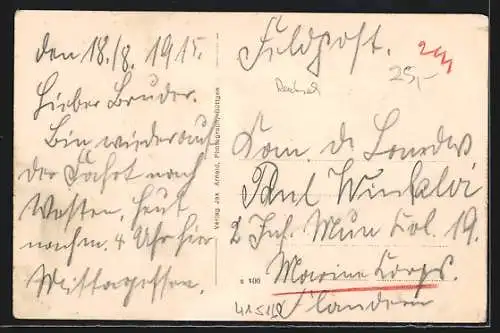 den 18./8. 1915.
Lieber Bruder.
Bin wieder auf
der Fahrt nach
Westen, heut
nachm. 4 Uhr hier
Mittagessen.
Verlag Jos. Arnold, Photograph,
Feldpost.
25,-
Paul Winkler
2 Inf. Mun Kol. 19.
Marine Korps.
Flandern